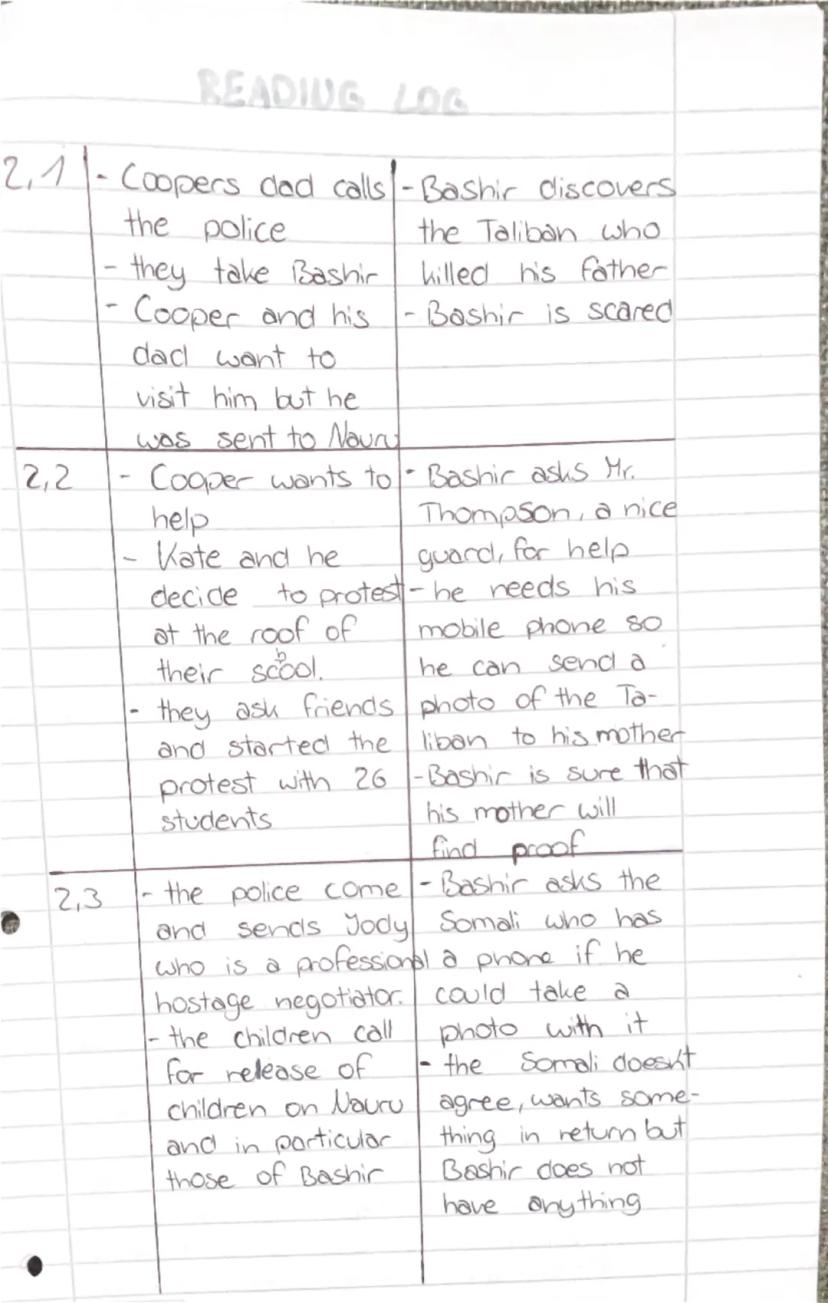 READING LOG
2,1
- Coopers dad calls
the police
- they take Bashir
- Cooper and his
dad want to
visit him but he
was sent to Nauru
- Bashir discovers
the Taliban who
killed his father
- Bashir is scared
2,2
- Cooper wants to
help
- Kate and he
decide to protest
at the roof of
their scool.
h
- they ask friends
and started the
protest with 26
students
- Bashir asks Mr.
Thompson, a nice
guard, for help
- he needs his
mobile phone so
he can send a
photo of the Ta-
liban to his mother
- Bashir is sure that
his mother will
find proof
2,3
- the police come
and sends Jody
who is a professional
hostage negotiator.
- the children call
for release of
children on Nauru
and in particular
those of Bashir
- Bashir asks the
Somali who has
a phone if he
could take a
photo with it
- the Somali doesn't
agree, wants some-
thing in return but
Bashir does not
have anything